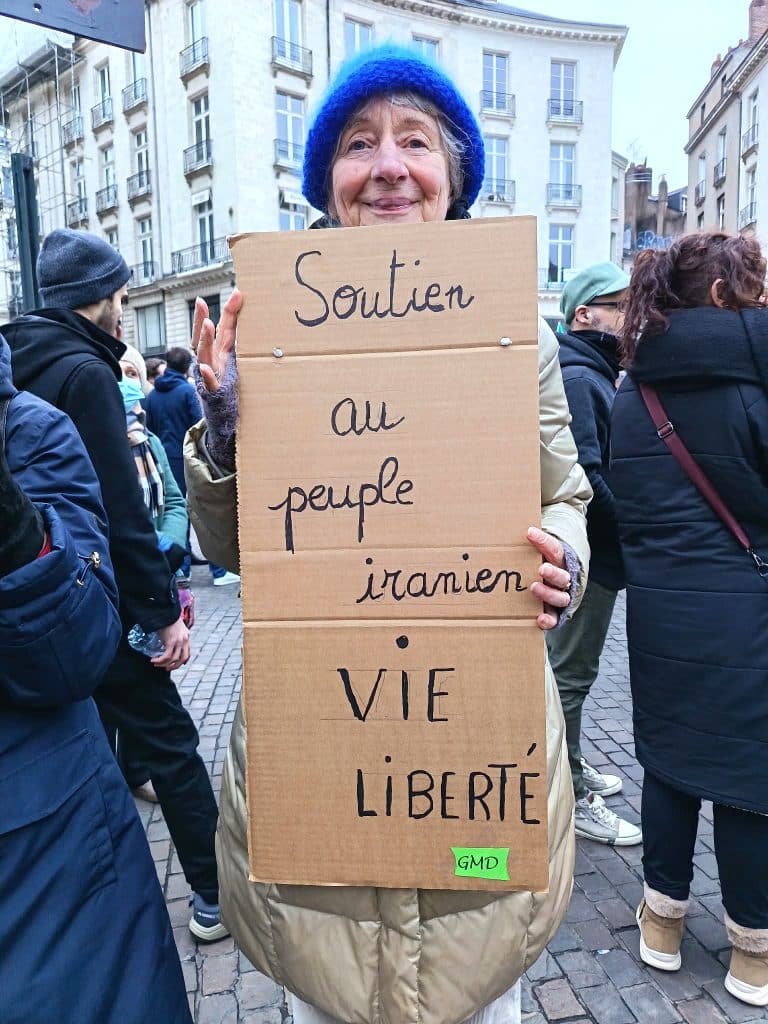 Soutien
au
peuple
iranien
ViE
LiBERTÉ
GMD